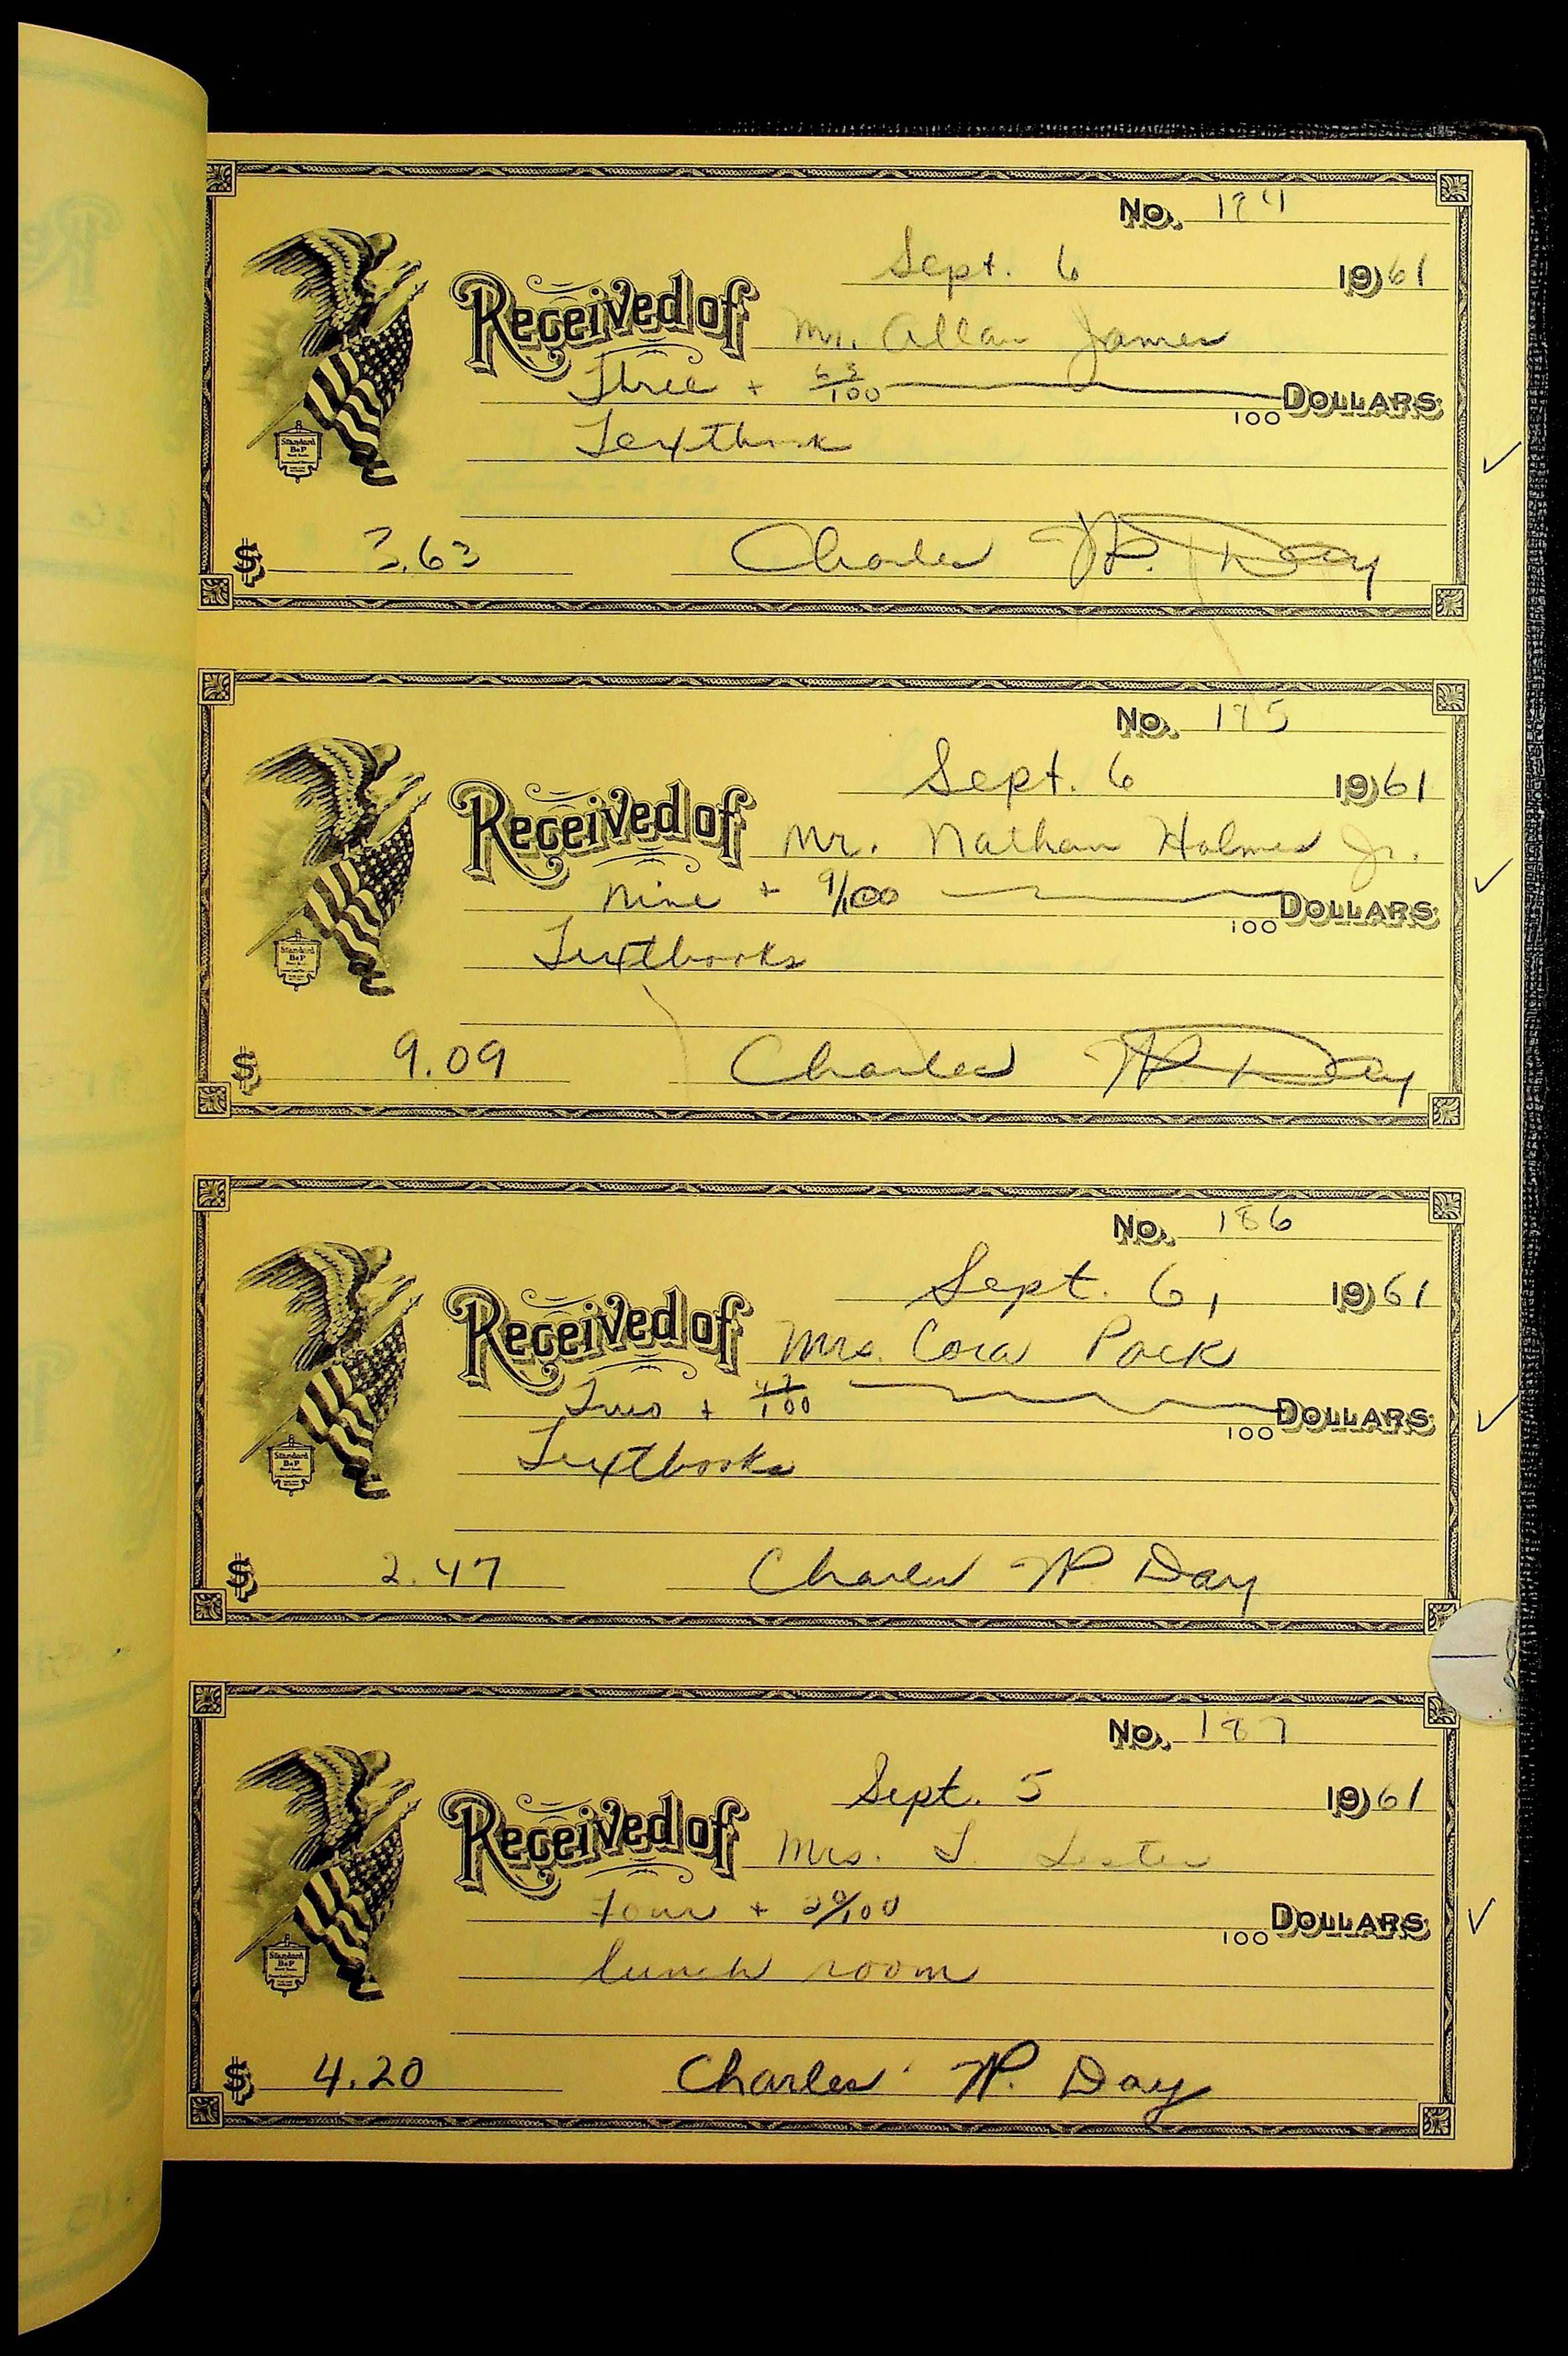 No. 184
Sept. 6 1961
Received of Mr. Allan James
Three + 63/100 100 DOLLARS
Textbook
$ 3.63 Charles W. Day
No. 185
Sept. 6 1961
Received of Mr. Nathan Holmes Jr.
Nine + 9/100 100 DOLLARS
Textbooks
$ 9.09 Charles W. Day
No. 186
Sept. 6, 1961
Received of Mrs. Cora Pack
Two + 47/100 100 DOLLARS
Textbooks
$ 2.47 Charles W. Day
No. 187
Sept. 5 1961
Received of Mrs. J. Lester
Four + 20/100 100 DOLLARS
lunch room
$ 4.20 Charles W. Day